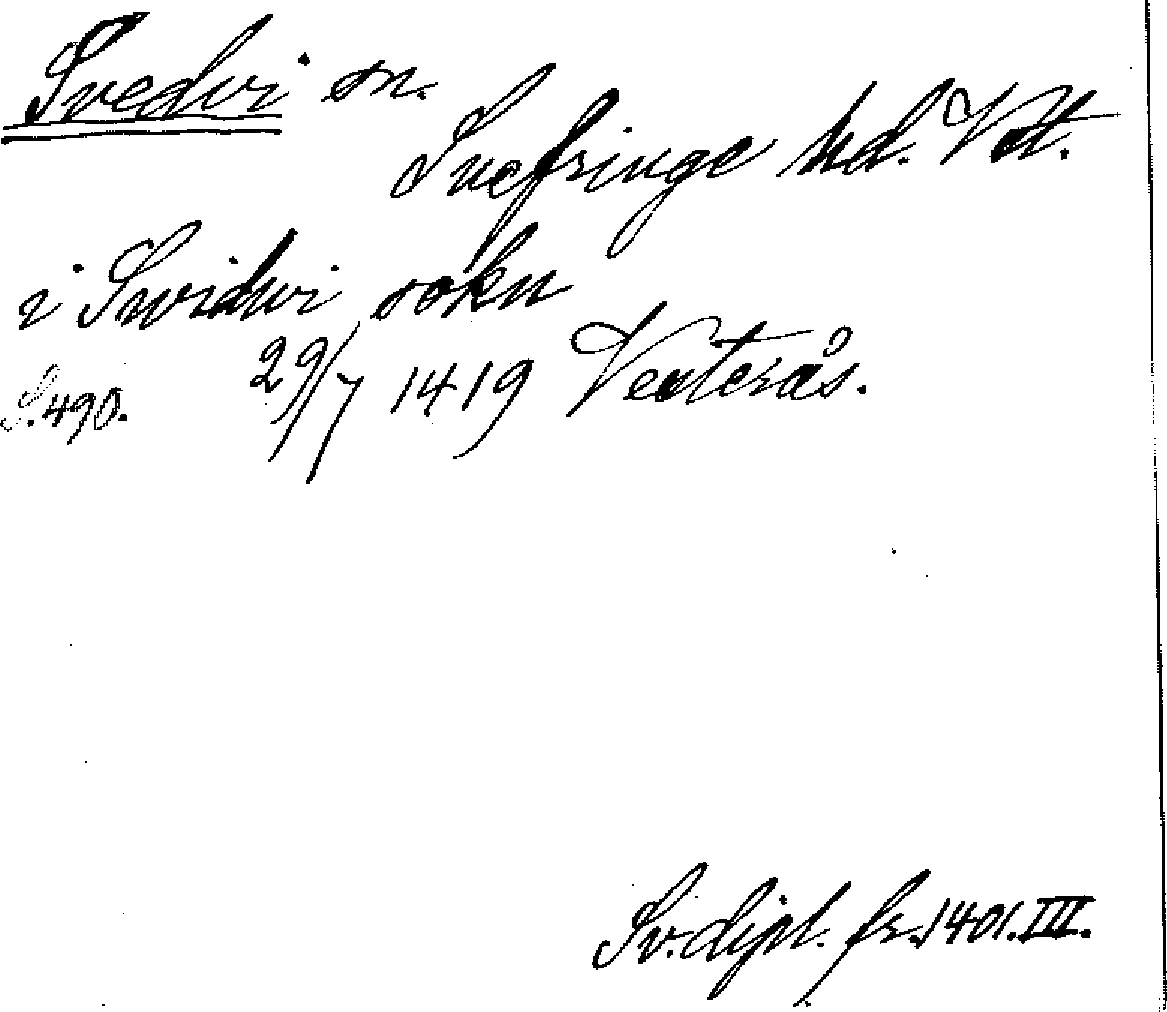 Svedvi sn.
Snefringe hd. Vstl.
i Swidwi sokn
S. 490. 29/7 1419 Vesterås.
Sv. dipl. fr. 1401. III.